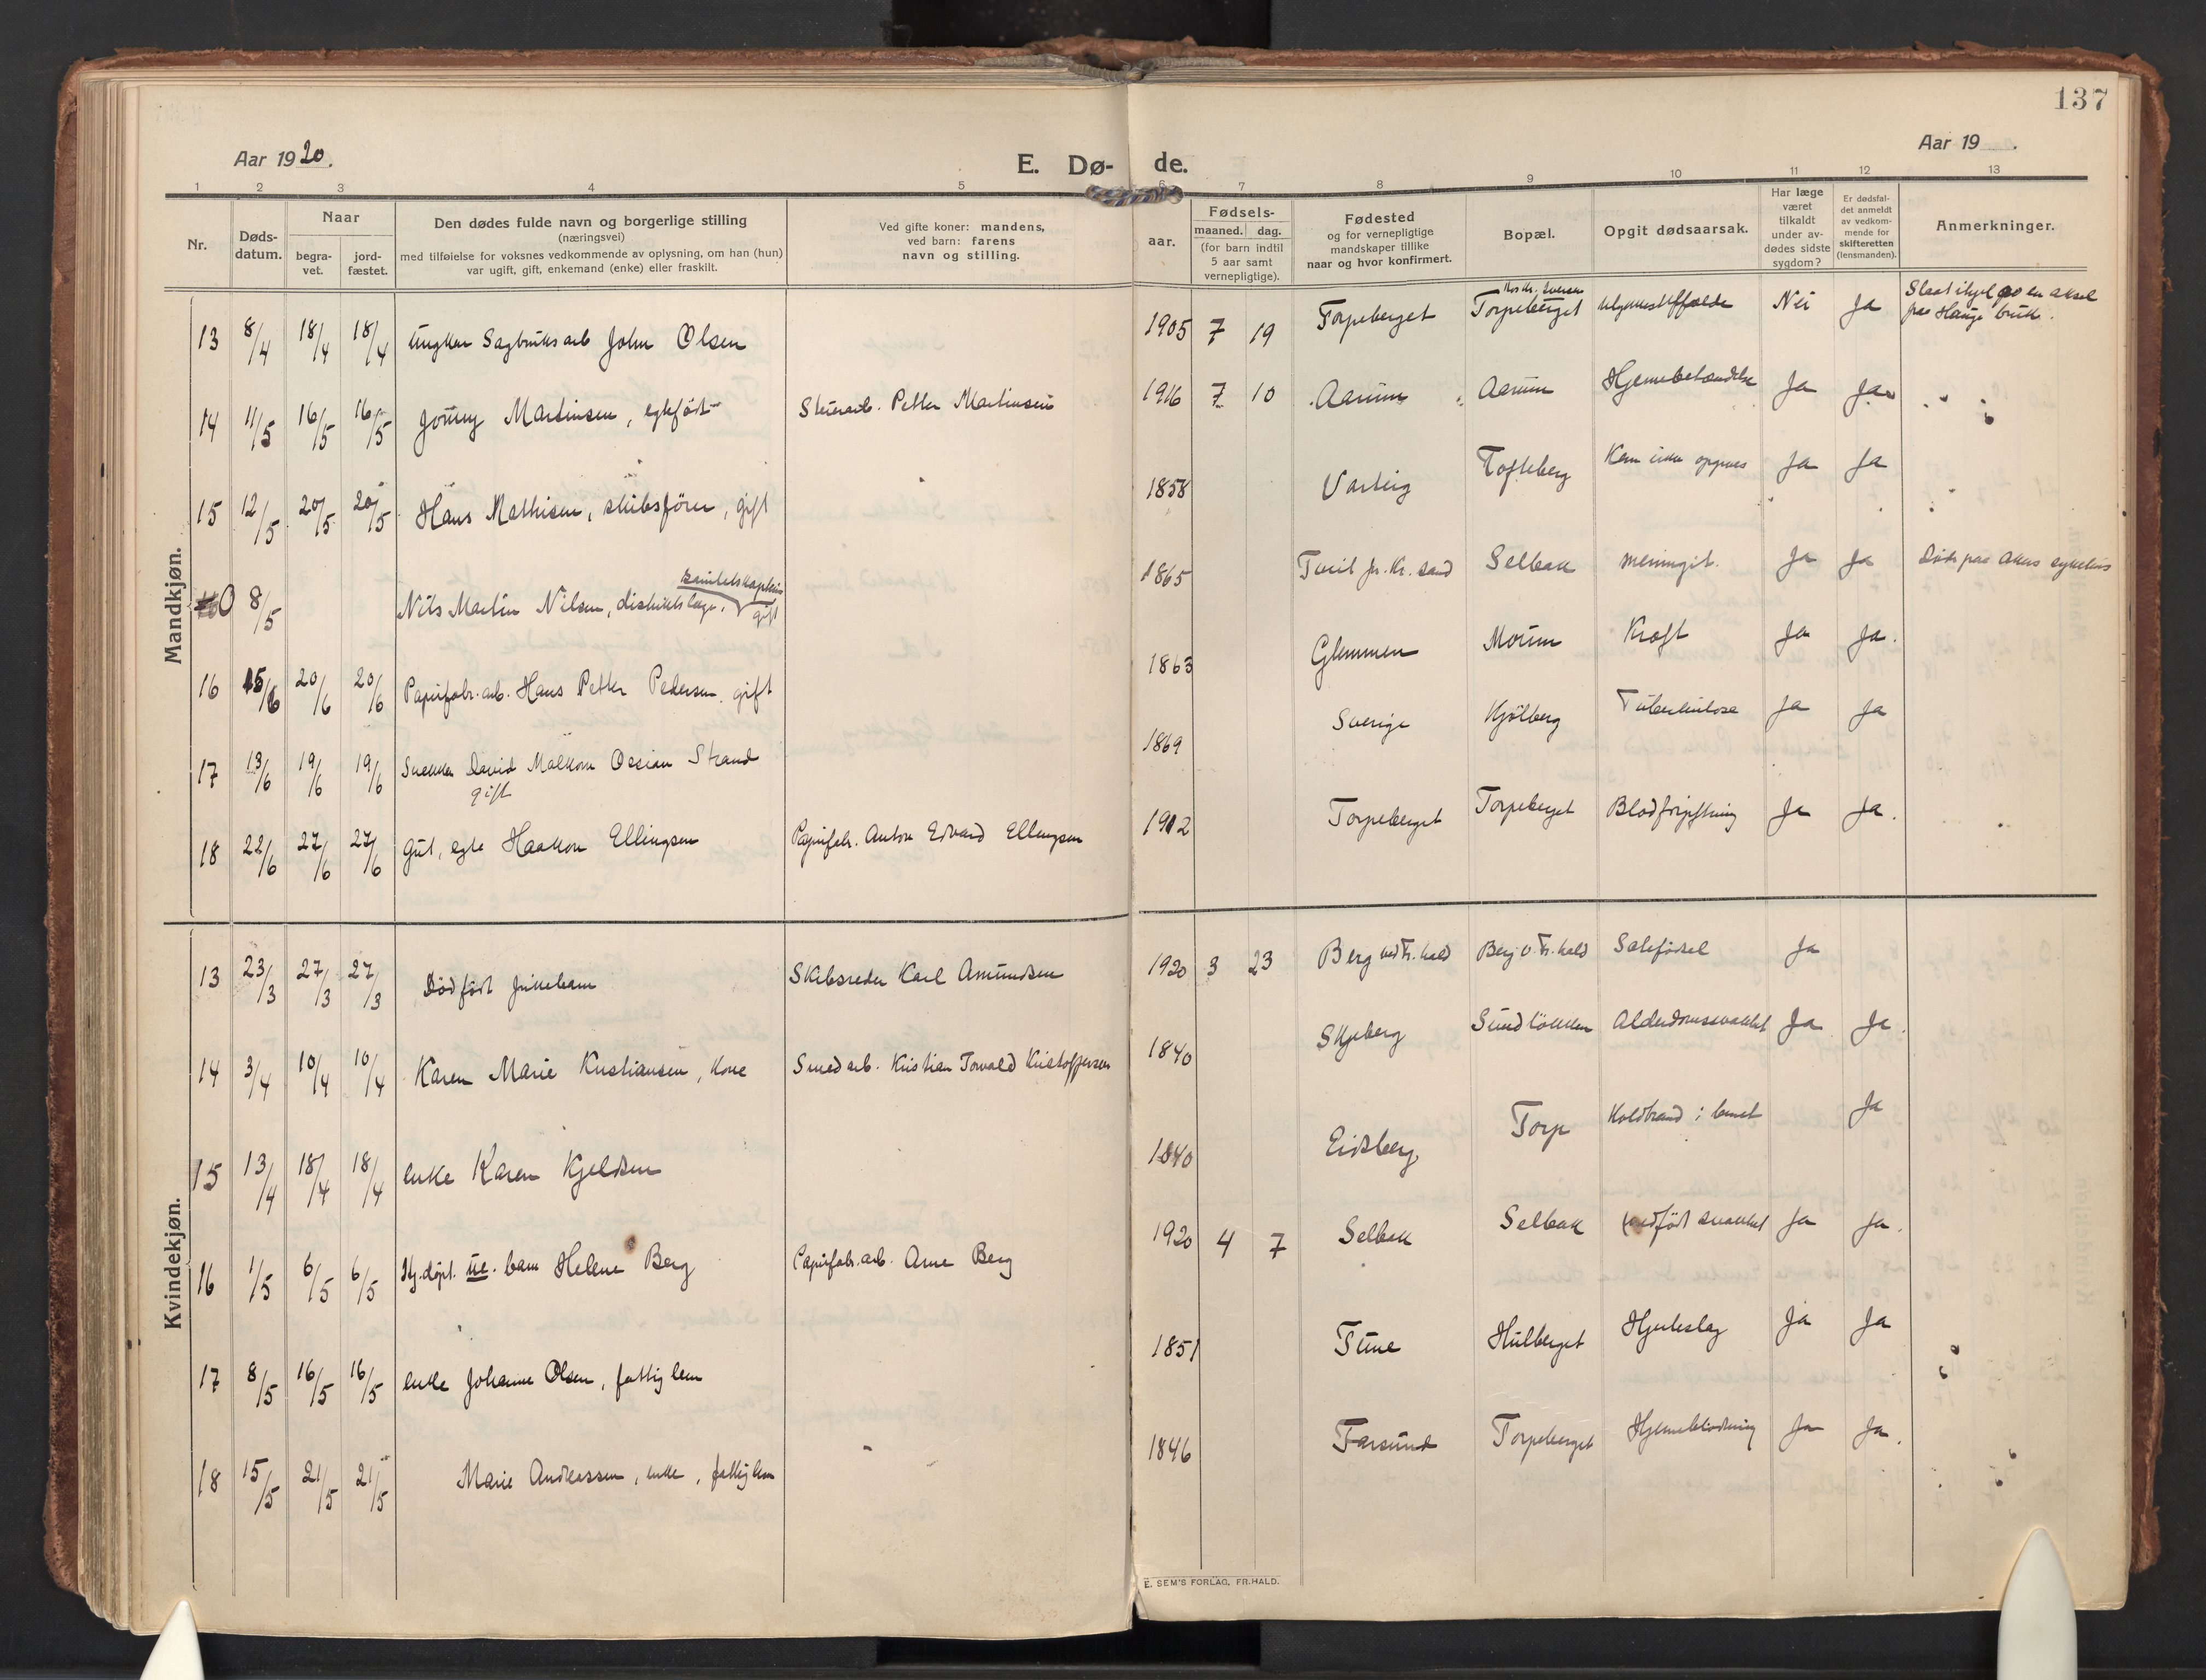 137
Aar 1920.
E. Dø- de.
Aar 19 .
1 2 3 4 5 6 7 8 9 10 11 12 13
Nr.
Døds-
datum.
Naar
begra-
vet.
jord-
fæstet.
Den dødes fulde navn og borgerlige stilling
(næringsvei)
med tilføielse for voksnes vedkommende av oplysning, om han (hun)
var ugift, gift, enkemand (enke) eller fraskilt.
Ved gifte koner: mandens,
ved barn: farens
navn og stilling.
aar.
Fødsels-
maaned. dag.
(for barn indtil
5 aar samt
vernepligtige).
Fødested
og for vernepligtige
mandskaper tillike
naar og hvor konfirmert.
Bopæl.
Opgit dødsaarsak.
Har læge
været
tilkaldt
under av-
dødes sidste
sygdom?
Er dødsfal-
det anmeldt
av vedkom-
mende for
skifteretten
(lensmanden).
Anmerkninger.
Mandkjøn.
13 8/4 18/4 18/4 Ungkar Sagbruksarb John Olsen 1905 7 19 Torpeberget Torpeberget Nei Ja Slaat ihjel av en aksel
paa Hauge bruk.
14 11/5 16/5 16/5 Martinsen, egtefødt Petter Martinsen 1916 7 10 Aarum Aarum Hjernebetændelse Ja Ja
15 12/5 20/5 20/5 Hans Mathisen, skibsfører, gift 1858 Varteig Tofteberg Kan ikke opgives Ja Ja
0 8/5 Nils Martin Nilsen, distriktslæge, sanitetskaptein
gift 1865 Selbak meningit. Ja Ja Døde paa Akers sykehus
16 15/6 20/6 20/6 Papirfabr. arb. Hans Petter Pedersen gift 1863 Glemmen Moum Kræft Ja Ja.
17 13/6 19/6 19/6 Snekker David Malkom Ossian Strand
gift 1869 Sverige Kjølberg Tuberkulose Ja Ja
18 22/6 27/6 27/6 Gut, egte Haakon Ellingsen Papirfabr. Anton Edvard Ellingsen 1912 Torpeberget Torpeberget Blodforgiftning Ja Ja.
Kvindekjøn.
13 23/3 27/3 27/3 Dødfødt pikebarn Skibsreder Karl Amundsen 1920 3 23 Berg ved Fr.hald Berg v. Fr.hald Sætefødsel Ja
14 3/4 10/4 10/4 Karen Marie Kristiansen, kone Smedarb. Kristian Torvald Kristoffersen 1840 Skjeberg Sundløkken Alderdomssvakhet Ja Ja.
15 13/4 18/4 18/4 enke Karen Kjeldsen 1840 Eidsberg Torp Koldbrand i benet Ja
16 1/5 6/5 6/5 Hj.døpt. ue. barn Helene Berg Papirfabr. arb. Arne Berg 1920 4 7 Selbak Selbak medfødt svakhet Ja Ja.
17 8/5 16/5 16/5 enke Johanne Olsen, fattiglem 1851 Tune Hulberget Hjerteslag Ja Ja
18 15/5 21/5 21/5 Marie Andreassen, enke, fattiglem 1846 Farsund Torpeberget Hjerneblødning Ja Ja.
E. SEM'S FORLAG, FR.HALD.